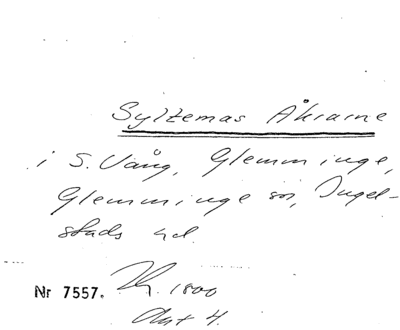 Syltemas Åkrarne
i S. Vång, Glemminge,
Glemminge sn, Ingel-
stads hd.
Nr 7557. 1800
Akt 4.